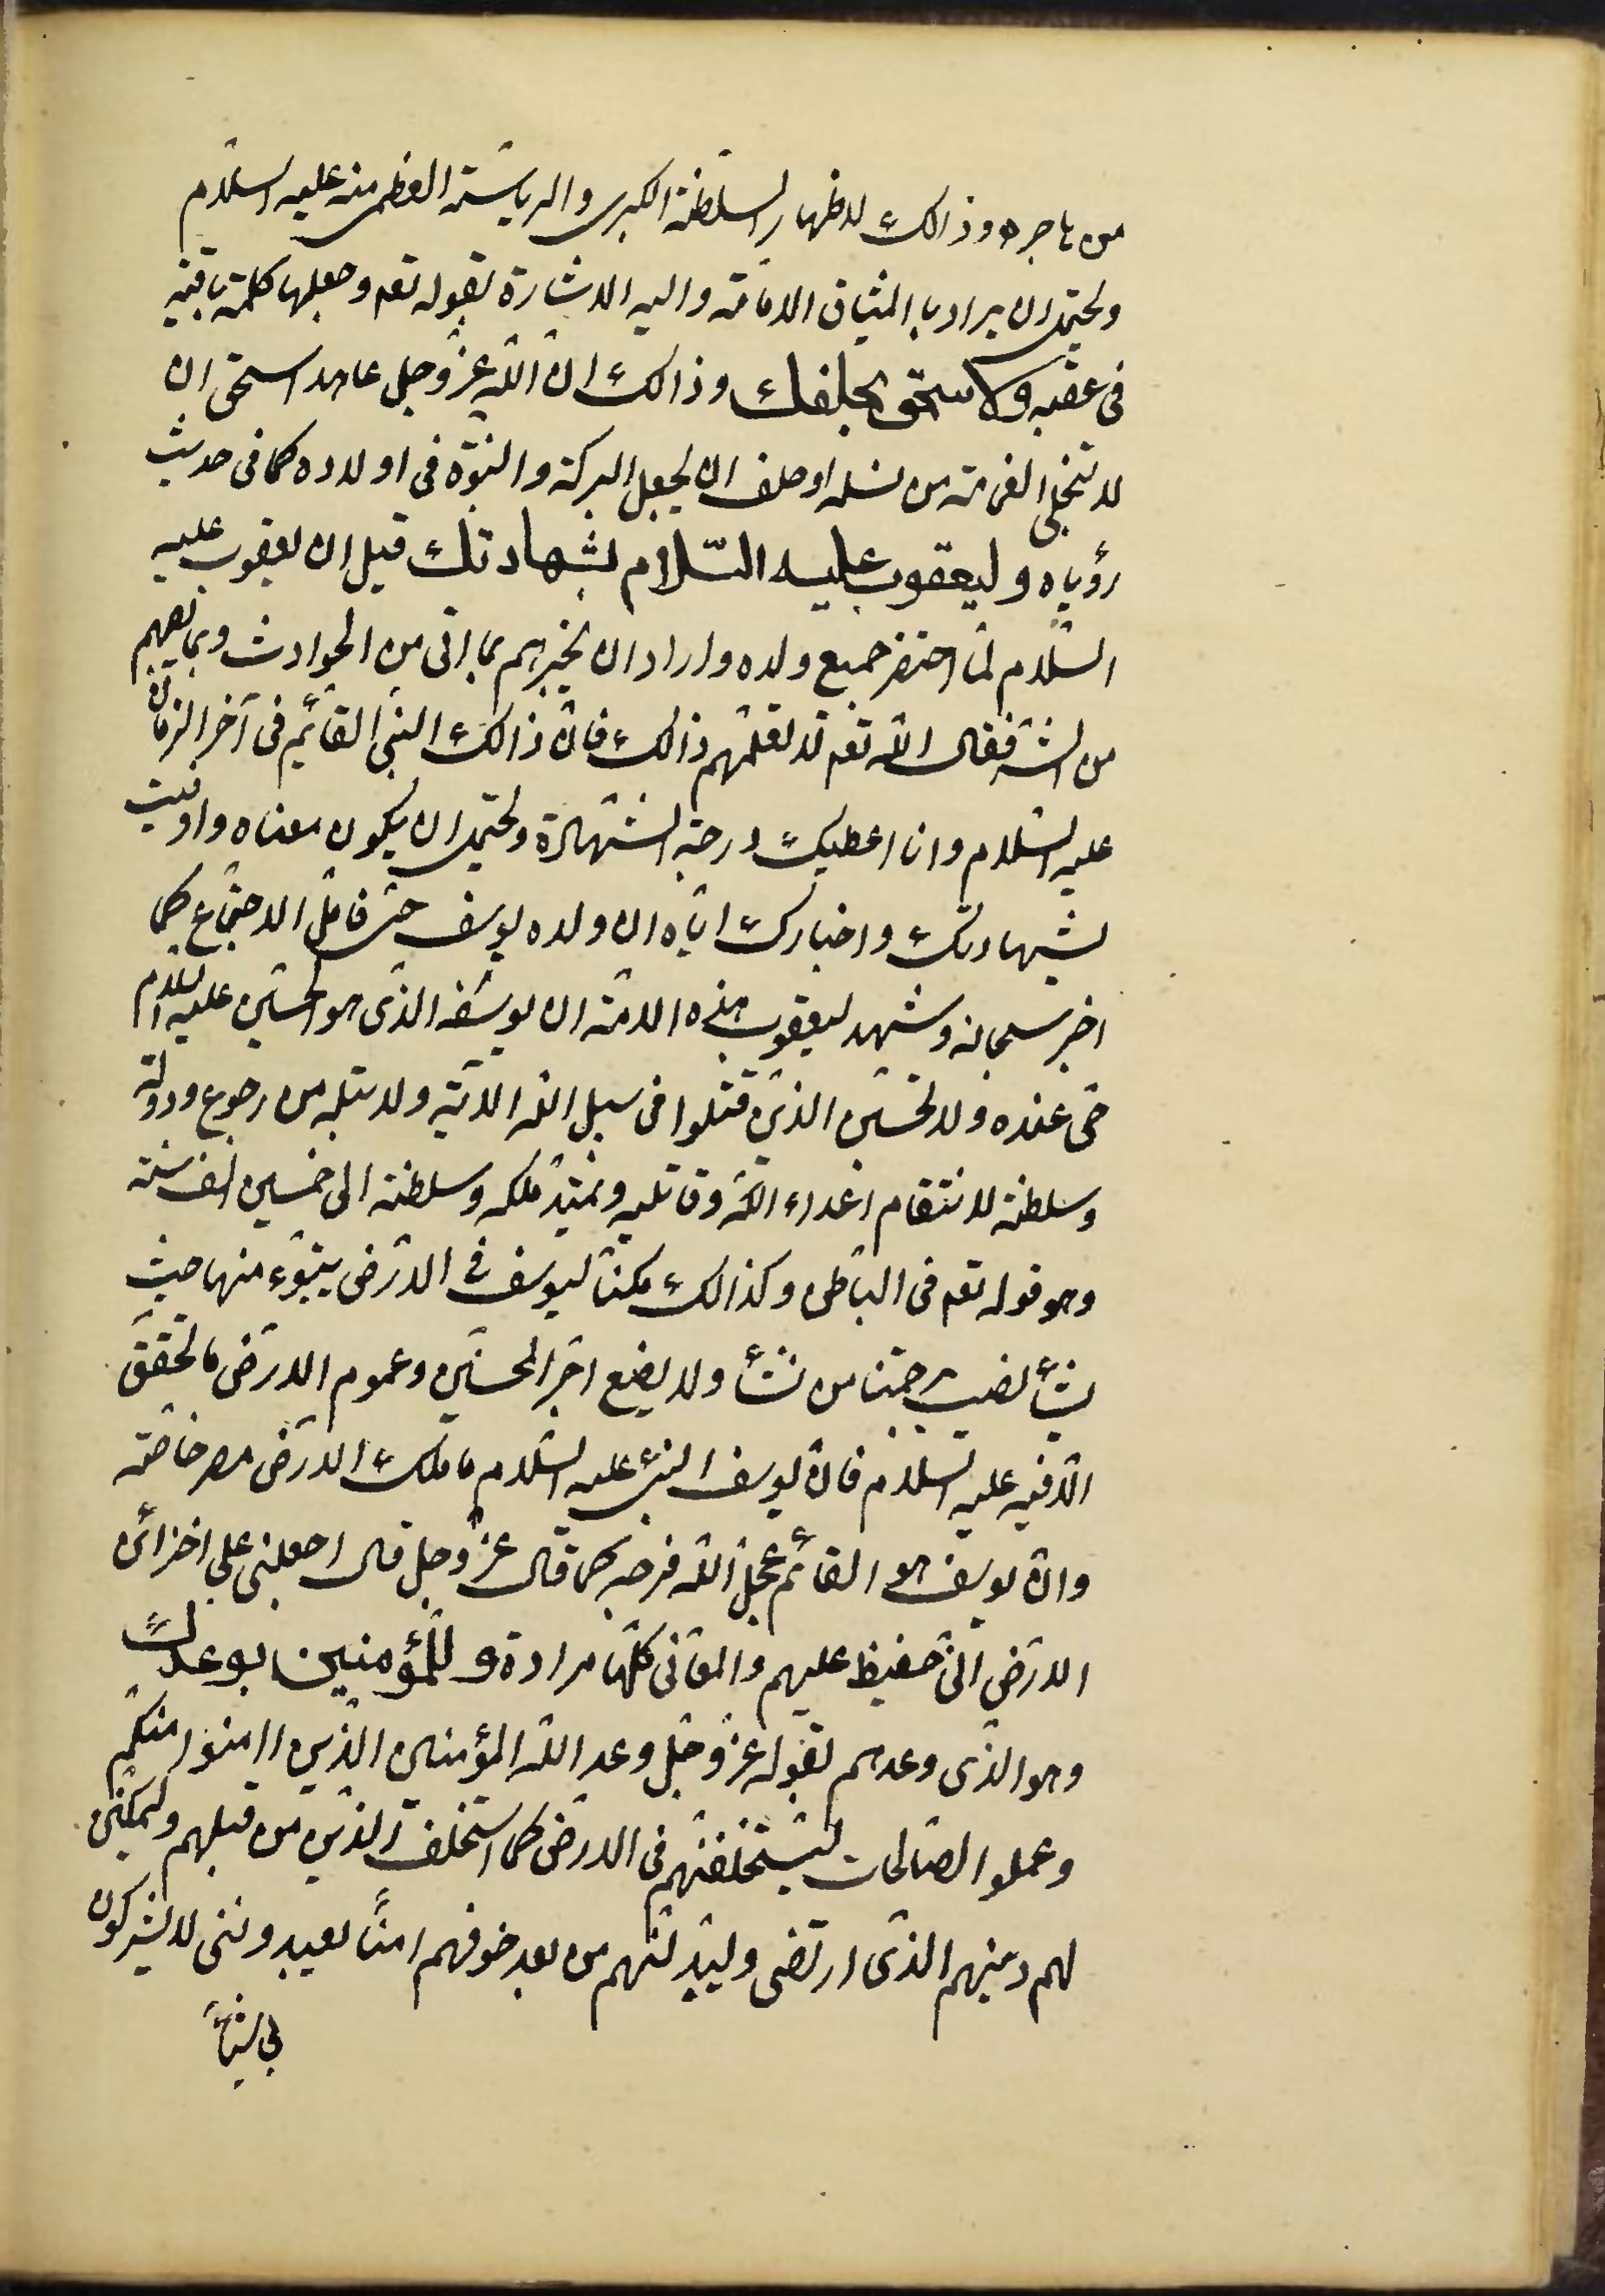 من هاجره وذالك لاظهار السلطنة الكبرى والرياسة العظمى منه عليه السّلام
ويحتمل ان يراد بالميثاق الامامة واليه الاشارة بقوله تعه وجعلها كلمة باقية
فى عقبه ولاسحق بحلفك وذالك ان الله عزّ وجل عاهد اسحق ان
لا تنجلى الغمامة من نسله او حلف ان يجعل البركة والنبوّة فى اولاده كما فى حديث
رؤياه وليعقوب عليه السّلام بشهادتك قيل ان يعقوب عليه
السّلام لمّا احتضر جميع ولده واراد ان يخبرهم بما اتى من الحوادث وبما يصيبهم
من الشدّة فقال الله تعه لا تعلمهم ذالك فان ذالك النبىّ القائم فى آخر الزمان
عليه السّلام وانا اعطيك درجة الشهادة ويحتمل ان يكون معناه واوفيت
بشهادتك واخبارك ايّاه ان ولده يوسف حىّ قابل الاجتماع كما
اخبر سبحانه وشهد ليعقوب هذه الامّة ان يوسفه الذى هو الحسين عليه السلام
حى عنده ولا تحسبن الذين قتلوا فى سبيل الله الآية ولا بدّ له من رجوع ودولة
وسلطنة لانتقام اعداء الله وقاتليه ويمتدّ ملكه وسلطنة الى خمسين الف سنة
وهو قوله تعه فى الباطن وكذالك مكنّا ليوسف فى الارض يتبوّء منها حيث
يشأ نصيب برحمتنا من نشأ ولا يضيع اجر المحسنين وعموم الارض ما تحقق
الّا فيه عليه السّلام فانّ يوسف النبىّ عليه السّلام ما ملك الارض مصر خاصّة
وانّ يوسف هو القائم عجل الله فرجه كما قال عزّ وجل قال اجعلنى على اخزائن
الارض انّى حفيظ عليهم والمعانى كلّها مرادة وللمؤمنين بوعدك
وهو الذى وعدهم بقوله عزّ وجلّ وعد الله المؤمنين الذين اامنوا منكم
وعملوا الصّالحات ليستخلفنّهم فى الارض كما استخلف الذين من قبلهم وليمكننّ
لهم دينهم الذى ارتضى وليبدّلنّهم من بعد خوفهم امنًا يعبدوننى لا يشركون
بى شيئًا